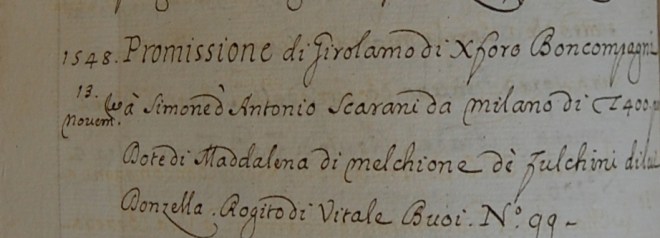 1548. Promissione di Girolamo di Xforo Boncompagni
13. Novem. à Simone d'Antonio Scarani da Milano di 400
Dote di Maddalena di Melchione dè fulchini di lui
Donzella. Rogito di Vitale Buoi. N.º 99-